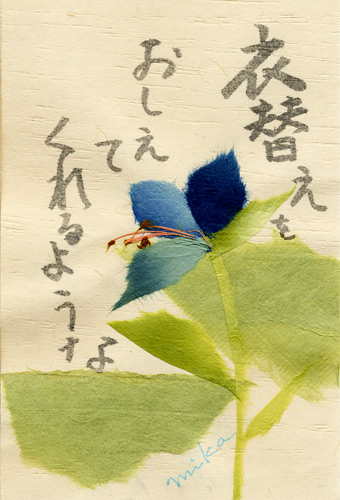 衣替えを
おしえて
くれるような
mika